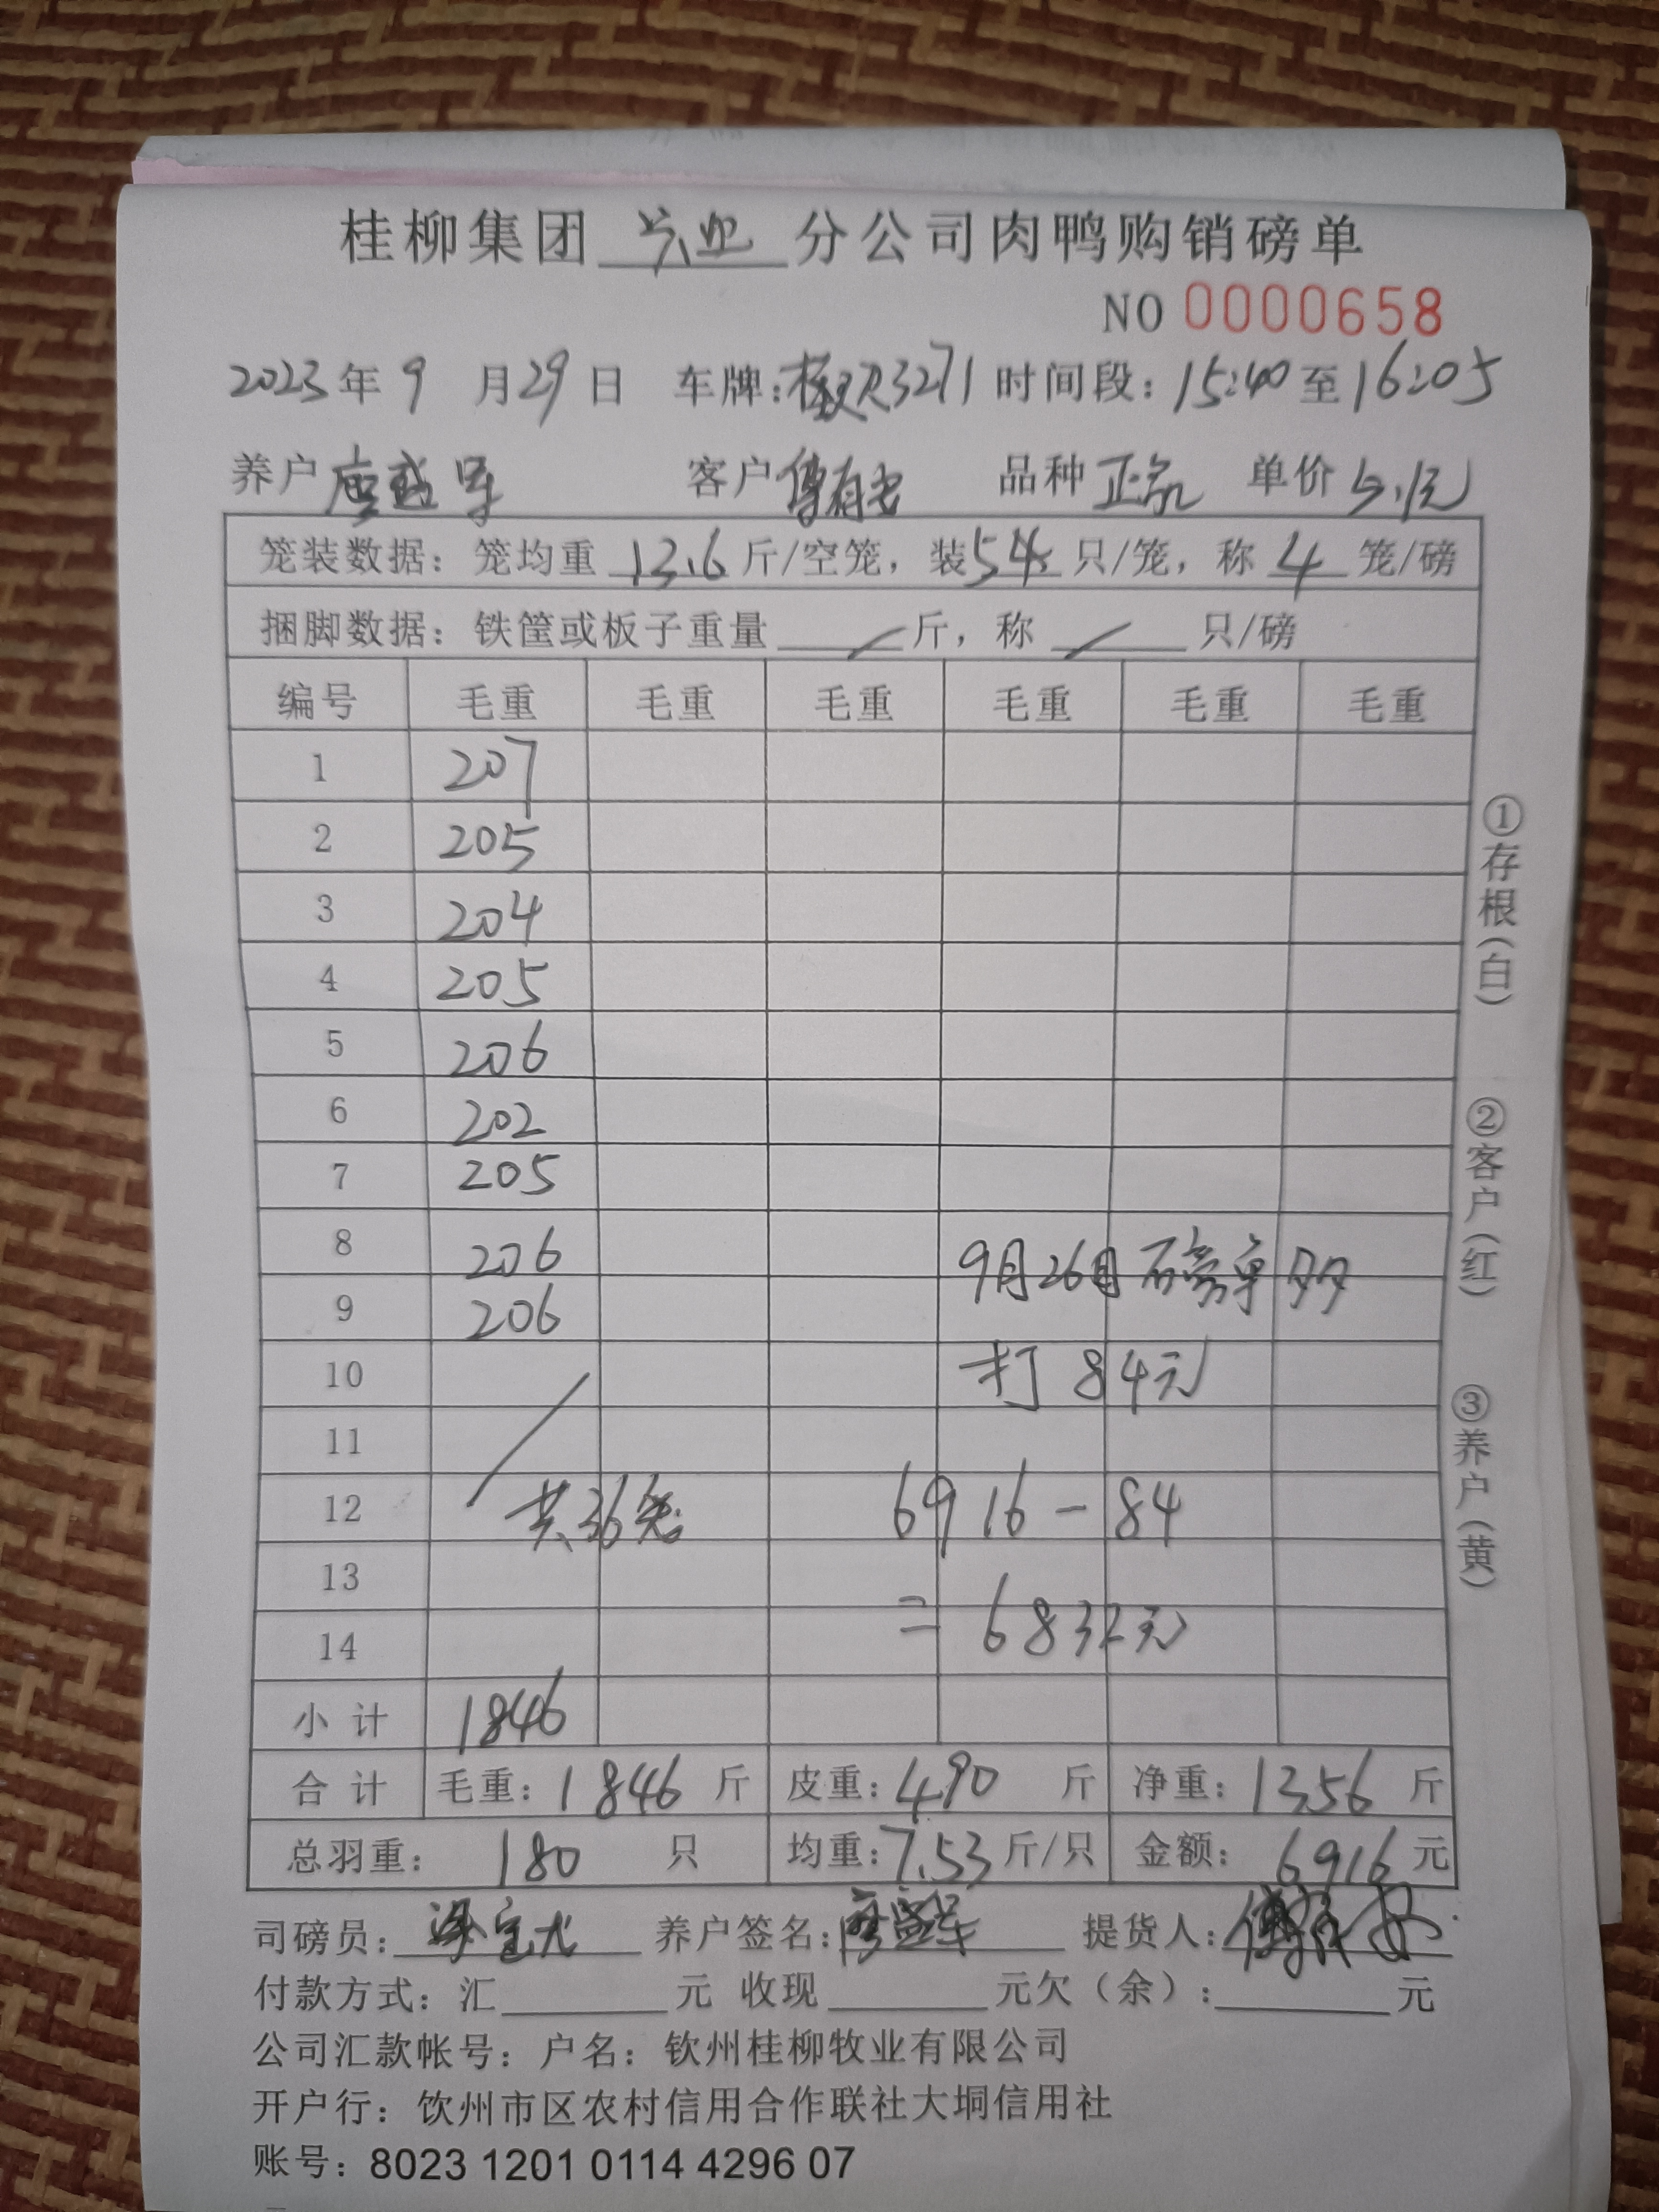 桂柳集团 兴业 分公司肉鸭购销磅单
NO 0000658
2023年9月29日 车牌:桂 3271 时间段:15:40至16:05
养户 客户傅有 品种 正 单价5.1元
笼装数据:笼均重 13.6 斤/空笼,装 5 只/笼,称 4 笼/磅
捆脚数据:铁筐或板子重量 / 斤,称 / 只/磅
编号 毛重 毛重 毛重 毛重 毛重 毛重
1 207
2 205
3 204
4 205
5 206
6 202
7 205
8 206 9月26日磅单多
9 206
10 打84元
11
12 共36笼 6916-84
13
14 =6832元
小计 1846
合计 毛重:1846 斤 皮重:490 斤 净重:1356 斤
总羽重:180 只 均重:7.53 斤/只 金额:6916 元
司磅员: 养户签名: 提货人:
付款方式:汇 元 收现 元欠(余): 元
公司汇款帐号:户名:钦州桂柳牧业有限公司
开户行:饮州市区农村信用合作联社大垌信用社
账号:8023 1201 0114 4296 07
①存根(白)
②客户(红)
③养户(黄)